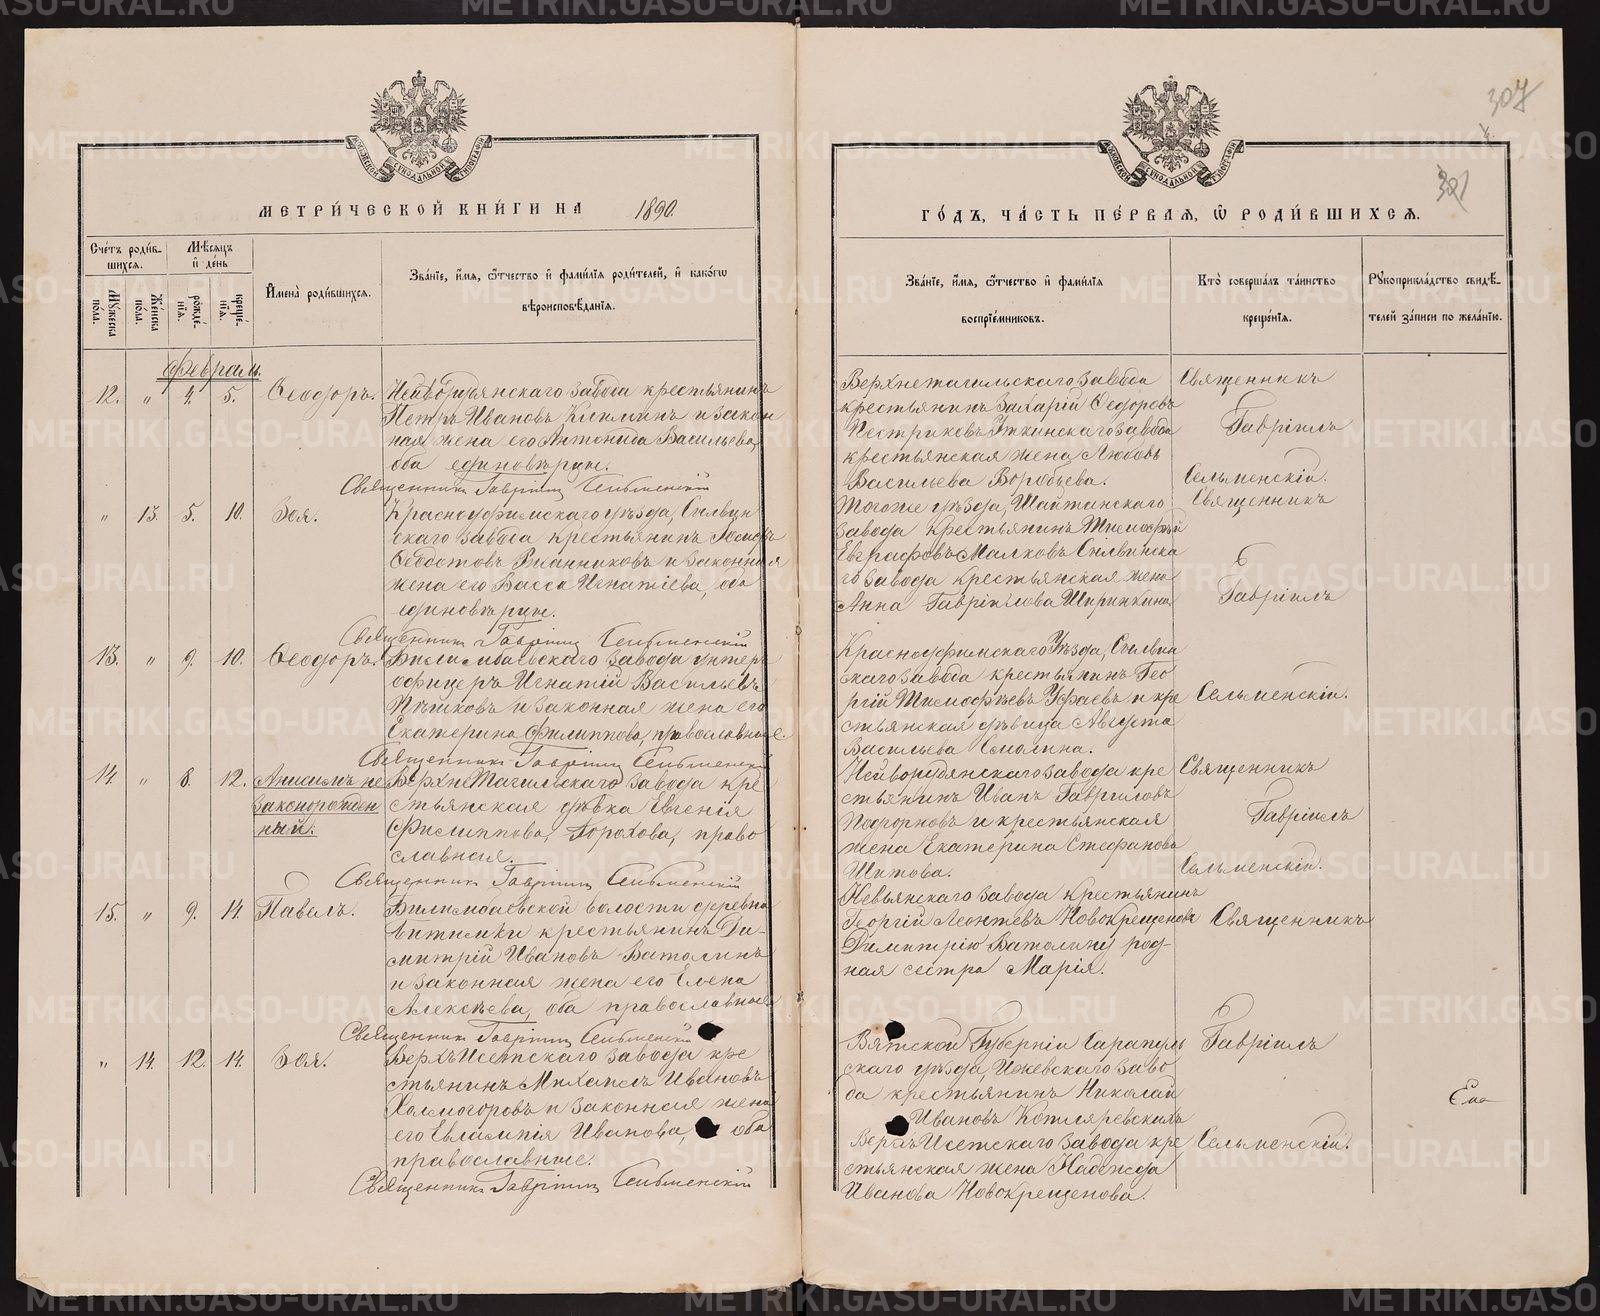 МЕТРИ́ЧЕСКОЙ КНИ́ГИ НА 1890.
Сче́тъ роди́в-
шихся.
Мѣ́сяцъ
и҆ де́нь
Мꙋ́жеска
пола.
Же́нска
пола.
рожде́-
нїя.
креще́-
нїя.
И҆мена̀ роди́вшихся.
Зва́нїе, и҆́мя, ѻ҆́тчество и҆ фами́лїя роди́телей, и҆ како́гѡ
вѣроисповѣ́данїя.
Февраль.
12. " 4. 5. Ѳеодоръ. Нейворудянскаго завода крестьянинъ
Петръ Ивановъ Климинъ и закон
ная жена его Антонида Васильева,
оба единовѣрцы.
Священникъ Гавріилъ Сельменскій
" 13. 5. 10. Зоя. Красноуфимскаго уѣзда, Сылвин
скаго завода крестьянинъ Іосифъ
Ѳедотовъ Ржанниковъ и законная
жена его Васса Игнатіева, оба
единовѣрцы.
Священникъ Гавріилъ Сельменскій
13. " 9. 10. Ѳеодоръ. Билимбаевскаго завода унтеръ
офицеръ Игнатій Васильевъ
Пѣшковъ и законная жена его
Екатерина Филиппова, православные.
Священникъ Гавріилъ Сельменскій
14 " 8. 12. Анисимъ не
законорожден
ный.
Верхне Тагильскаго завода кре
стьянская дѣвка Евгенія
Филиппова, Горохова, право
славная.
Священникъ Гавріилъ Сельменскій
15. " 9. 14. Павелъ. Билимбаевской волости деревни
Витимки крестьянинъ Ди-
митрій Ивановъ Ватолинъ
и законная жена его Елена
Алексѣева, оба православные
Священникъ Гавріилъ Сельменскій
" 14. 12. 14. Зоя. Верхъ Исетскаго завода кре
стьянинъ Михаилъ Ивановъ
Холмогоровъ и законная жена
его Евлампія Иванова, оба
православные.
Священникъ Гавріилъ Сельменскій
307
301
ГО́ДЪ, ЧА́СТЬ ПЕ́РВАЯ, Ѽ РОДИ́ВШИХСЯ.
Зва́нїе, и҆́мя, ѻ҆́тчество и҆ фами́лїя
воспрїе́мниковъ.
Кто̀ соверша́лъ та́инство
креще́нїя.
Рꙋкоприкла́дство свидѣ́-
телей за́писи по жела́нїю.
Верхнетагильскаго завода
крестьянинъ Захарій Ѳедоровъ
Пестриковъ Уткинскаго завода
крестьянская жена Любовь
Васильева Воробьева.
Священникъ
Гавріилъ
Сельменскій.
Тогоже уѣзда, Шайтанскаго
завода крестьянинъ Тимоѳѣй
Евграфовъ Малковъ Сылвинска
го завода крестьянская жена
Анна Гавріилова Ширинкина
Священникъ
Гавріилъ
Красноуфимскаго Уѣзда, Сылвин
скаго завода крестьянинъ Гео
ргій Тимоѳѣевъ Уфаевъ и кре
стьянская дѣвица Августа
Васильева Смолина.
Сельменскій.
Нейворудянскаго завода кре
стьянинъ Иванъ Гавриловъ
Подгорновъ и крестьянская
жена Екатерина Стефанова
Шитова.
Священникъ
Гавріилъ
Сельменскій.
Невьянскаго завода крестьянинъ
Георгій Леонтьевъ Новокрещеновъ
Димитрію Ватолину род-
ная сестра Марія.
Священникъ
Вятской Губерніи Сарапуль
скаго уѣзда, Ижевскаго заво
да крестьянинъ Николай
Ивановъ Котляревскихъ
Верхъ Исетскаго завода кре
стьянская жена Надежда
Иванова Новокрещенова.
Гавріилъ
Сельменскій.